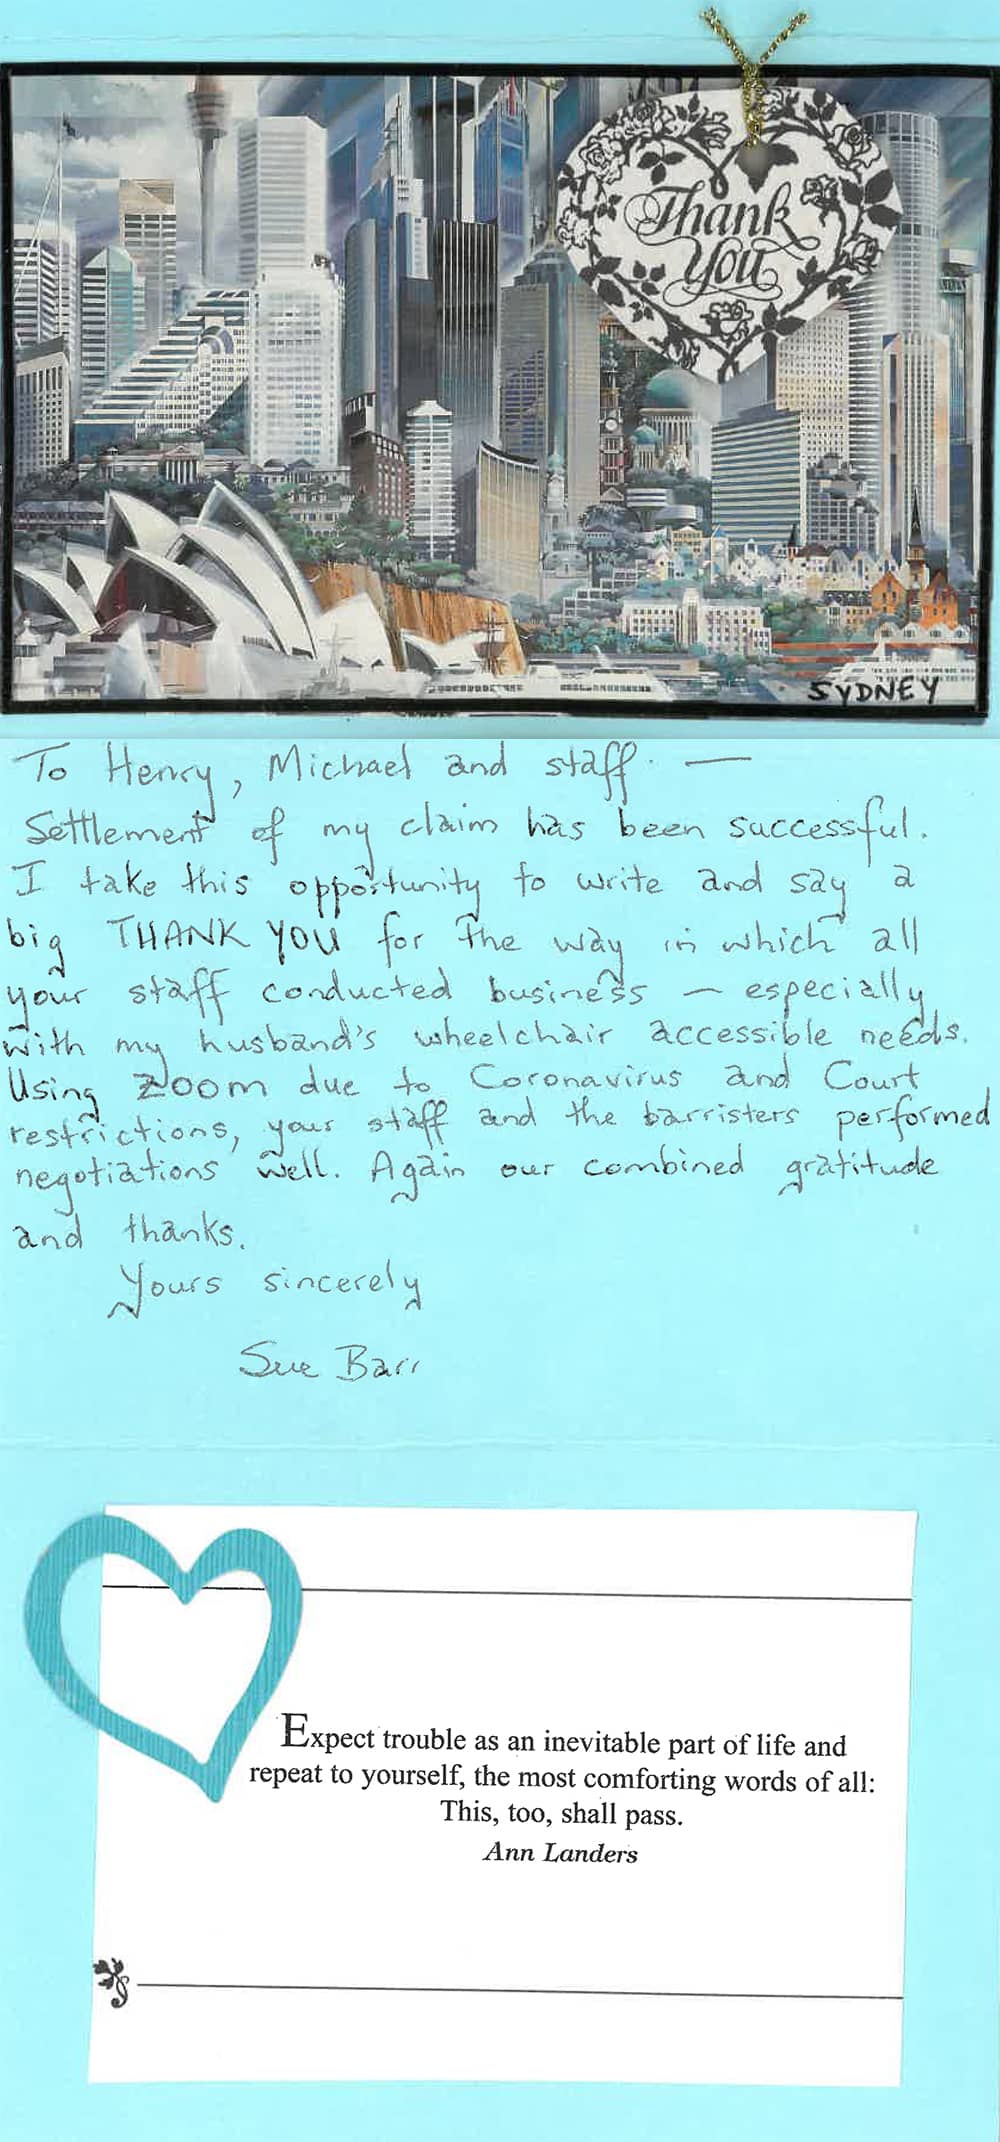 Thank
You
SYDNEY
To Henry, Michael and staff. —
Settlement of my claim has been successful.
I take this opportunity to write and say a
big THANK YOU for the way in which all
your staff conducted business — especially
with my husband's wheelchair accessible needs.
Using ZOOM due to Coronavirus and Court
restrictions, your staff and the barristers performed
negotiations well. Again our combined gratitude
and thanks.
Yours sincerely
Sue Barr
Expect trouble as an inevitable part of life and
repeat to yourself, the most comforting words of all:
This, too, shall pass.
Ann Landers